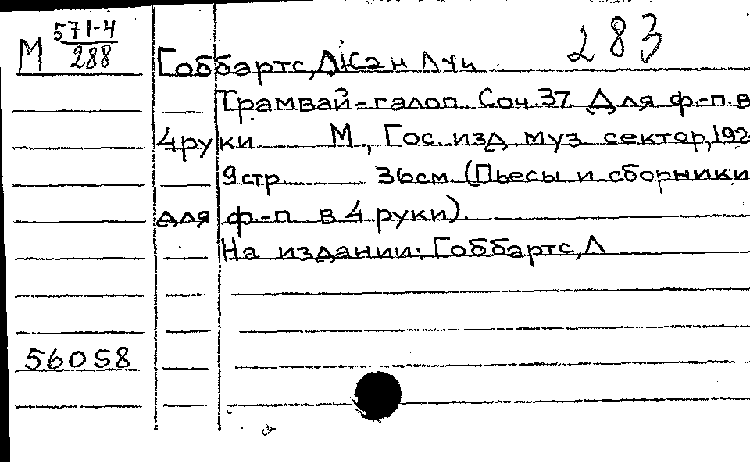 М 571-4
288
283
Гоббартс, Джан Луи
Трамвай-галоп. Соч. 37 Для ф.-п. в
4 руки М., Гос. изд. муз. сектор, 192
9 стр. 36 см. (Пьесы и сборники
для ф.-п. в 4 руки).
На издании: Гоббартс, Л
56058